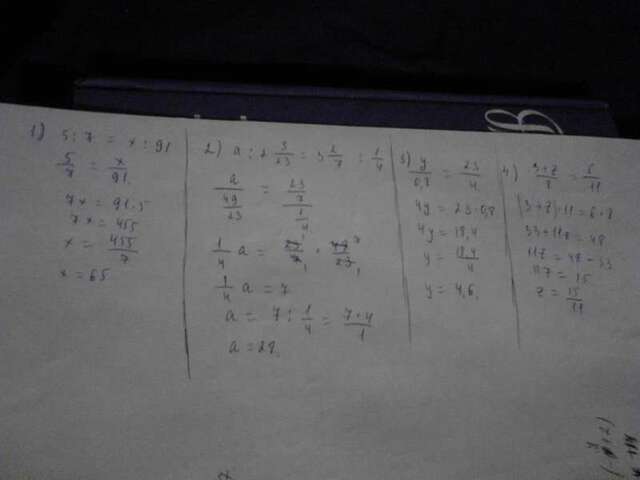 1) 5 : 7 = x : 91
5/7 = x/91
7x = 91·5
7x = 455
x = 455/7
x = 65
2) a : 2 3/23 = 3 2/7 : 1/4
a / (49/23) = (23/7) / (1/4)
1/4 a = 23/7 · 49/23
1/4 a = 7
a = 7 : 1/4 = 7·4/1
a = 28.
3) y/0,8 = 23/4
4y = 23·0,8
4y = 18,4
y = 18,4/4
y = 4,6.
4) 3+z/8 = 6/11
(3+z)·11 = 6·8
33+11z = 48
11z = 48-33
11z = 15
z = 15/11